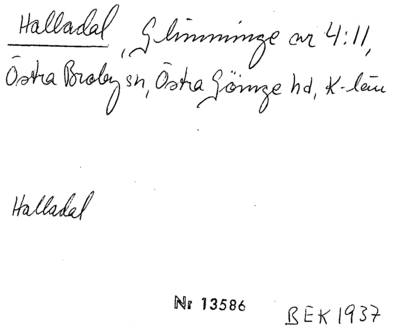 Halladal, Glimminge ar 4:11,
Östra Broby sn, Östra Göinge hd, K-län
Halladal
Nr 13586
BEK 1937